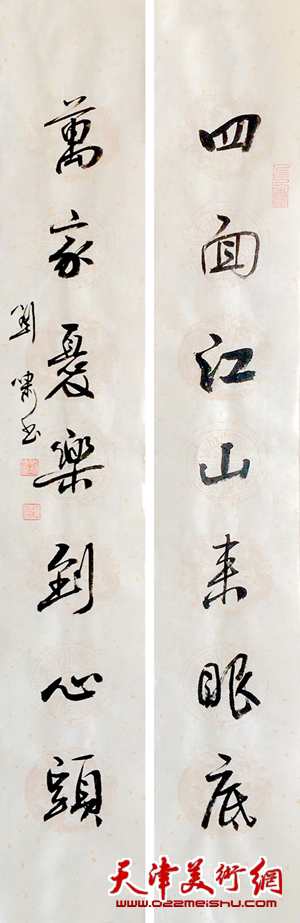 四面江山来眼底
萬家憂樂到心頭
劉嘯書
天津美術網
www.022meishu.com